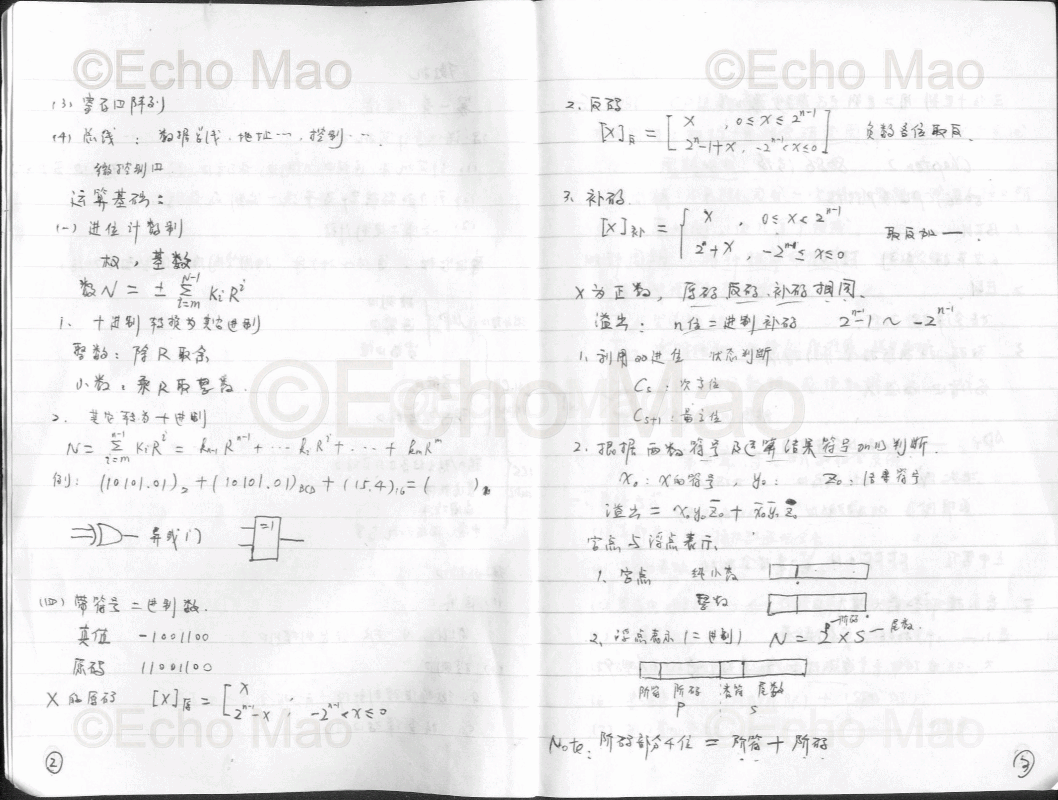 ©Echo Mao
(3) 寄存器阵列
(4) 总线：数据总线、地址…、控制…
微控制器
运算基础：
(一) 进位计数制
权、基数
数N = ± Σ_{i=m}^{N-1} Ki R^i
1. 十进制转换为其它进制
整数：除R取余
小数：乘R取整
2. 其它转为十进制
N = Σ_{i=m}^{n-1} Ki R^i = k_{n-1} R^{n-1} + … k_i R^i + … + k_m R^m
例：(10101.01)₂ + (10101.01)BCD + (15.4)₁₆ = (
异或门
=1
(四) 带符号二进制数.
真值 -1001100
原码 11001100
X的原码 [X]原 = [ X
2^{n-1} - X , -2^{n-1} < X ≤ 0
©Echo Mao
②
©Echo Mao
2. 反码
[X]反 = [ X , 0 ≤ X ≤ 2^{n-1}
2^n - 1 + X, -2^{n-1} < X ≤ 0 ] 负数各位取反
3. 补码
[X]补 = { X , 0 ≤ X < 2^{n-1}
2^n + X , -2^{n-1} ≤ X ≤ 0 取反加一.
X为正数，原码反码、补码相同.
溢出：n位二进制补码 2^{n-1}-1 ~ -2^{n-1}
1. 利用 进位 状态判断
Cs：次高位
Cs+1：最高位
2. 根据两数符号及运算结果符号 判断.
X₀：X的符号 y₀： Z₀：结果符号
溢出 = x₀y₀z̄₀ + x̄₀ȳ₀z₀
定点与浮点表示.
1. 定点 纯小数
整数
2. 浮点表示(二进制) N = 2^P × S
阶码
尾数
阶符 阶码 尾符 尾数
P S
Note: 阶码部分4位 = 阶符 + 阶码
©Echo Mao
③
©Echo Mao